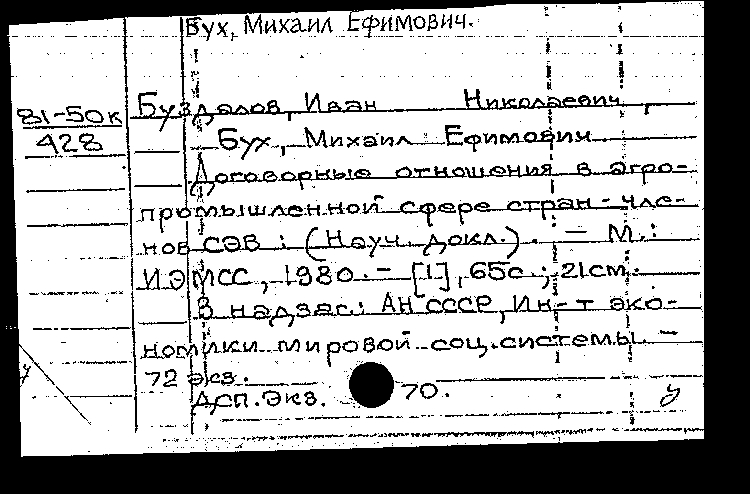 Бух, Михаил Ефимович.
81-50к
428
Буздалов, Иван Николаевич,
Бух, Михаил Ефимович.
Договорные отношения в агро-
промышленной сфере стран-чле-
нов СЭВ : (Науч. докл.). - М.:
ИЭМСС, 1980. - [1], 65с.; 21см.
В надзаг.: АН СССР, Ин-т эко-
номики мировой соц. системы. -
72 экз.
ДСП. Экз. 70.
у